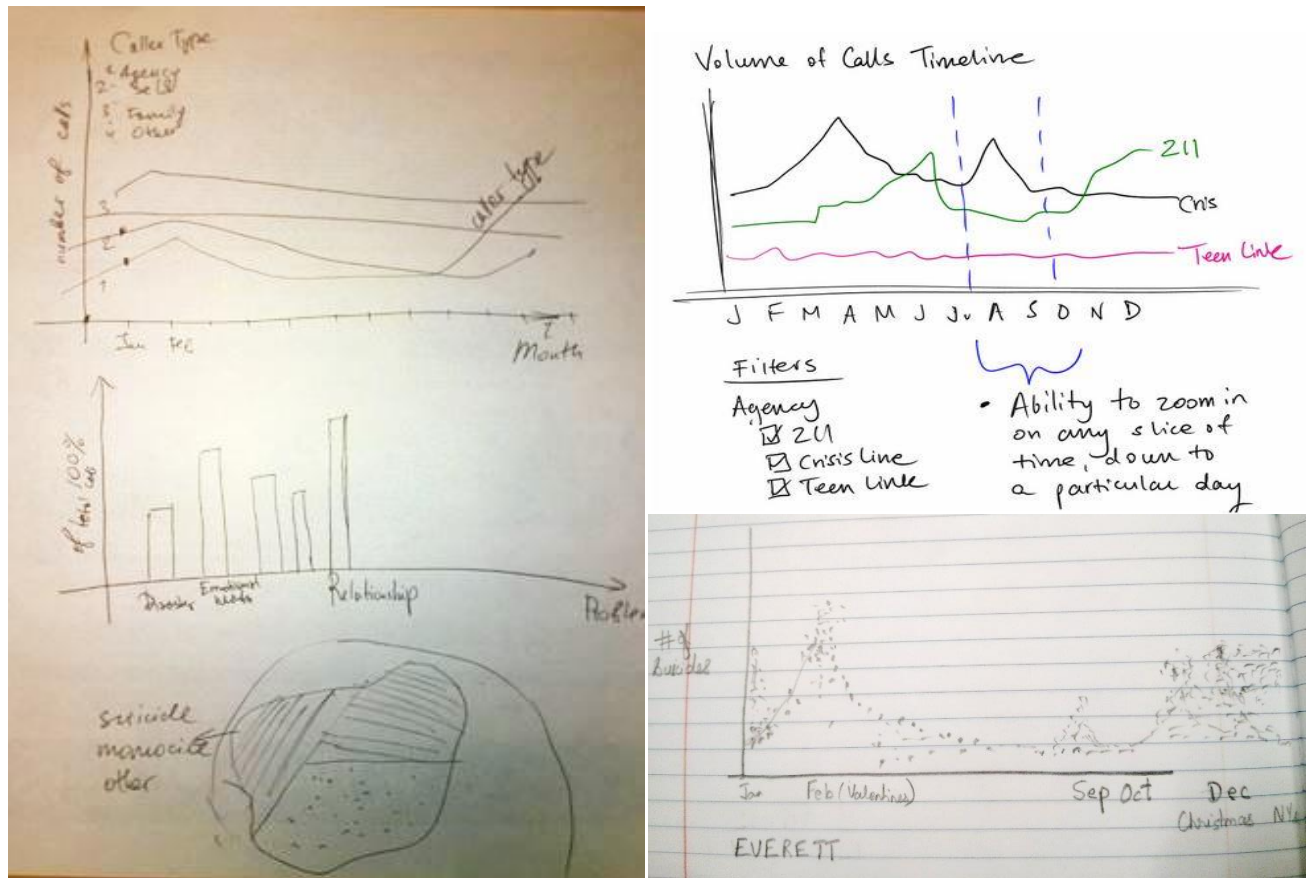 Caller Type
1 Agency
2- Self
3 Family
4 Other
number of cals
caler type
3
2
1
Jan Feb
Month
of 100%
total
Disaster Emotional
Relationship
Problem
suicide
other
Volume of Calls Timeline
211
Cris
Teen Link
J F M A M J Ju A S O N D
Filters
Agency
211
Crisis Line
Teen Link
• Ability to zoom in
on any slice of
time, down to
a particular day
# of
Suicides
Jan Feb (Valentines) Sep Oct Dec
Christmas NYE
EVERETT